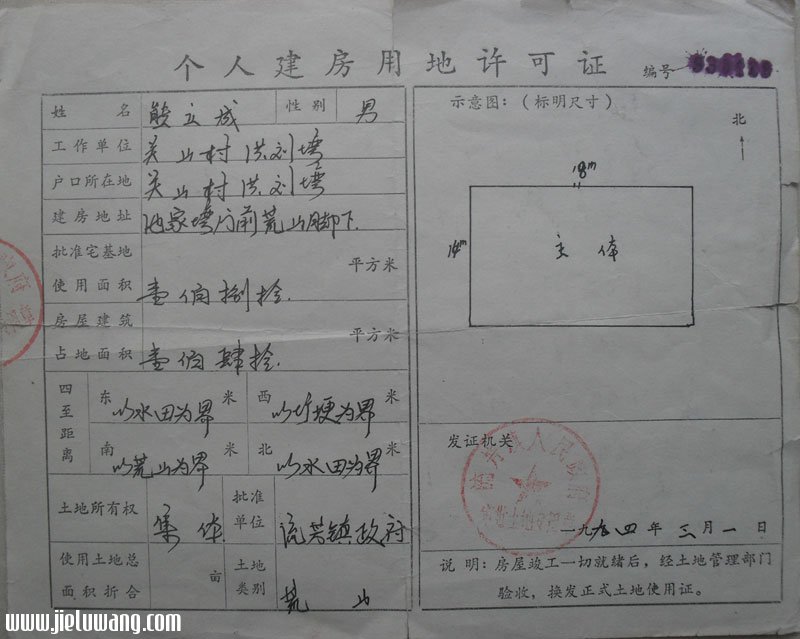 个人建房用地许可证
编号
姓名 熊立成 性别 男
工作单位 关山村洪刘塆
户口所在地 关山村洪刘塆
建房地址 池家塆门前荒山脚下
批准宅基地使用面积 壹佰捌拾 平方米
房屋建筑占地面积 壹佰肆拾 平方米
四至距离
东 以水田为界 米 西 以竹埂为界 米
南 以荒山为界 米 北 以水田为界 米
土地所有权 集体 批准单位 流芳镇政府
使用土地总面积折合 亩 土地类别 荒山
示意图:(标明尺寸)
北
18m
14m
主体
发证机关
人民政府
一九九四年三月一日
说明:房屋竣工一切就绪后,经土地管理部门
验收,换发正式土地使用证。
www.jieluwang.com